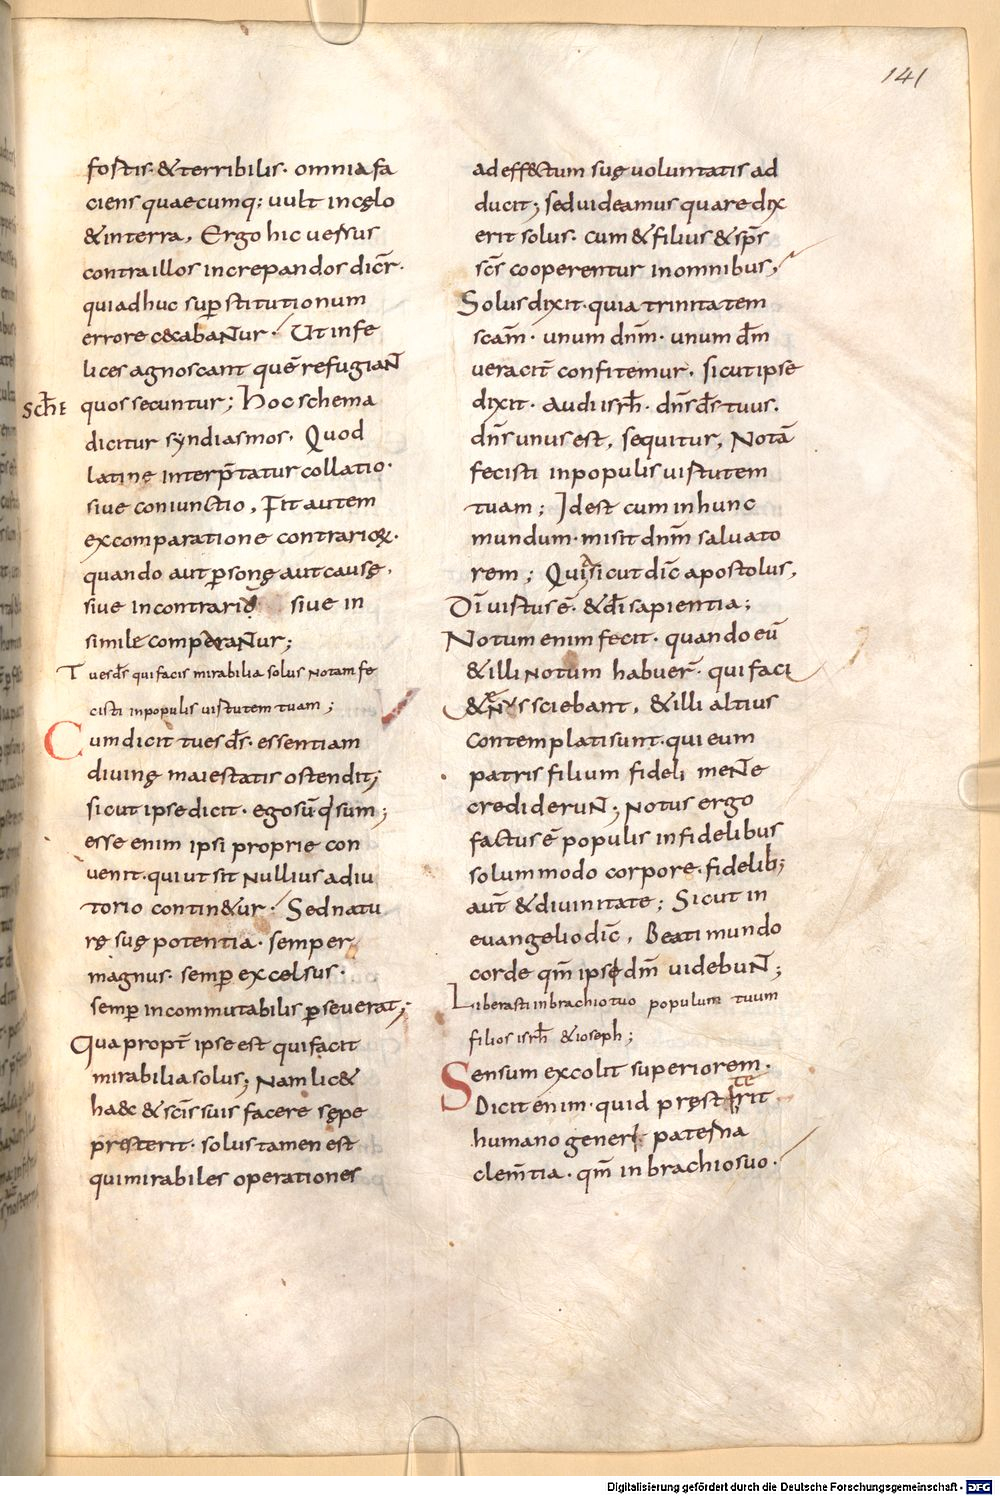 141
fortis· &terribilis· omnia fa
ciens quaecumq; uult incęlo
&interra, Ergo hic uersus
contra illos increpandos dicr̄·
qui adhuc sup̄stitutionum
errore cęcabaNtur· Ut infe
lices agnoscant quē refugiaN̄
sche quos secuntur; hoc schema
dicitur syndiasmos· Quod
latine interp̄tatur collatio·
siue coniunctio, Fit autem
excomparatione contrarioꝝ·
quando aut ꝑsonę aut causę,
siue incontrario siue in
simile comparaNtur;
Tu es ds̄ qui facis mirabilia solus Notam fe
cisti inpopulis uirtutem tuam;
Cum dicit tu es ds̄· essentiam
diuinę maiestatis ostendit;
sicut ipse dicit· ego sū qui sum;
esse enim ipsi proprie con
uenit· qui ut sit Nullius adiu
torio contin&ur· Sed natu
rę suę potentia· semper
magnus· semꝑ excelsus·
semꝑ incommutabilis ꝑseuerat;
Qua propt̄ ipse est qui facit
mirabilia solus; Nam lic&
haec & scīs suis facere sępe
pręsterit· solus tamen est
qui mirabiles operationes
ad eff&ctum suę uoluntatis ad
ducit; sed uideamus quare dix
erit solus· cum & filius & sp̄s
scs̄ cooperentur inomnibus;
Solus dixit· quia trinitatem
scam̄· unum dnm̄· unum dm̄
ueracit̄ confitemur· sicut ipse
dixit· audi isrh̄· dns̄ ds̄ tuus·
dns̄ unus est, sequitur, Notā
fecisti inpopulis uirtutem
tuam; Idest cum inhunc
mundum· misit dnm̄ saluato
rem; Quia sicut dic̄ apostolus,
Di ̄uirtus ē· & di ̄sapientia;
Notum enim fecit· quando eū
&illi Notum habuer̄· qui faci
& sciebant, & illi altius
contemplati sunt· qui eum
patris filium fideli meNte
credideruNt; Notus ergo
factus ē populis infidelibus
solummodo corpore· fidelib;
aut̄ & diuinitate; Sicut in
euangelio dic̄, Beati mundo
corde qm̄ ipsi dm̄ uidebuNt;
Liberasti inbrachio tuo populum tuum
filios isrh̄ & ioseph;
Sensum excolit superiorem·
Dicit enim· quid pręstiterit
humano generi paterna
clem̄tia· qm̄ in brachio suo·
Digitalisierung gefördert durch die Deutsche Forschungsgemeinschaft · DFG